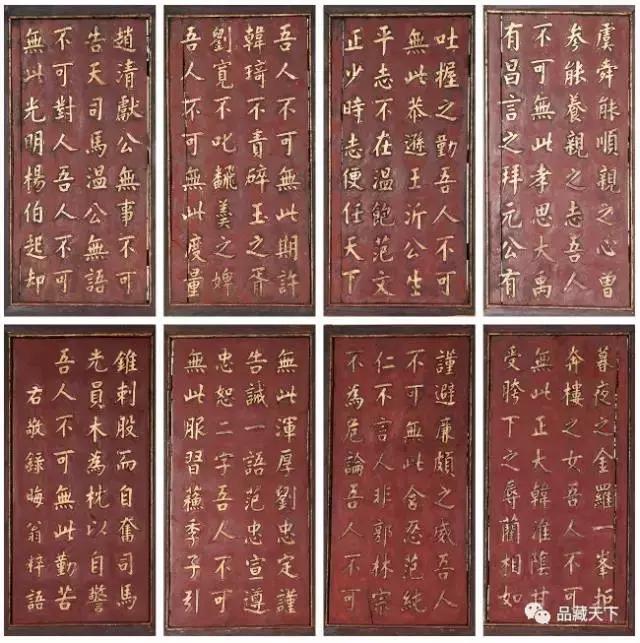 虞舜能順親之心曾
參能養親之志吾人
不可無此孝思大禹
有昌言之拜元公有
吐握之勤吾人不可
無此恭遜王沂公生
平志不在溫飽范文
正少時志便任天下
吾人不可無此期許
韓琦不責碎玉之胥
劉寬不叱翻羹之婢
吾人不可無此度量
趙清獻公無事不可
告天司馬溫公無語
不可對人吾人不可
無此光明楊伯起却
暮夜之金羅一峯拒
奔樓之女吾人不可
無此正大韓淮陰甘
受胯下之辱藺相如
謹避廉頗之威吾人
不可無此含忍范純
仁不言人非郭林宗
不為危論吾人不可
無此渾厚劉忠定謹
告誡一語范忠宣遵
忠恕二字吾人不可
無此服習蘇季子引
錐刺股而自奮司馬
光員木為枕以自警
吾人不可無此勤苦
右敬錄晦翁粹語
品藏天下